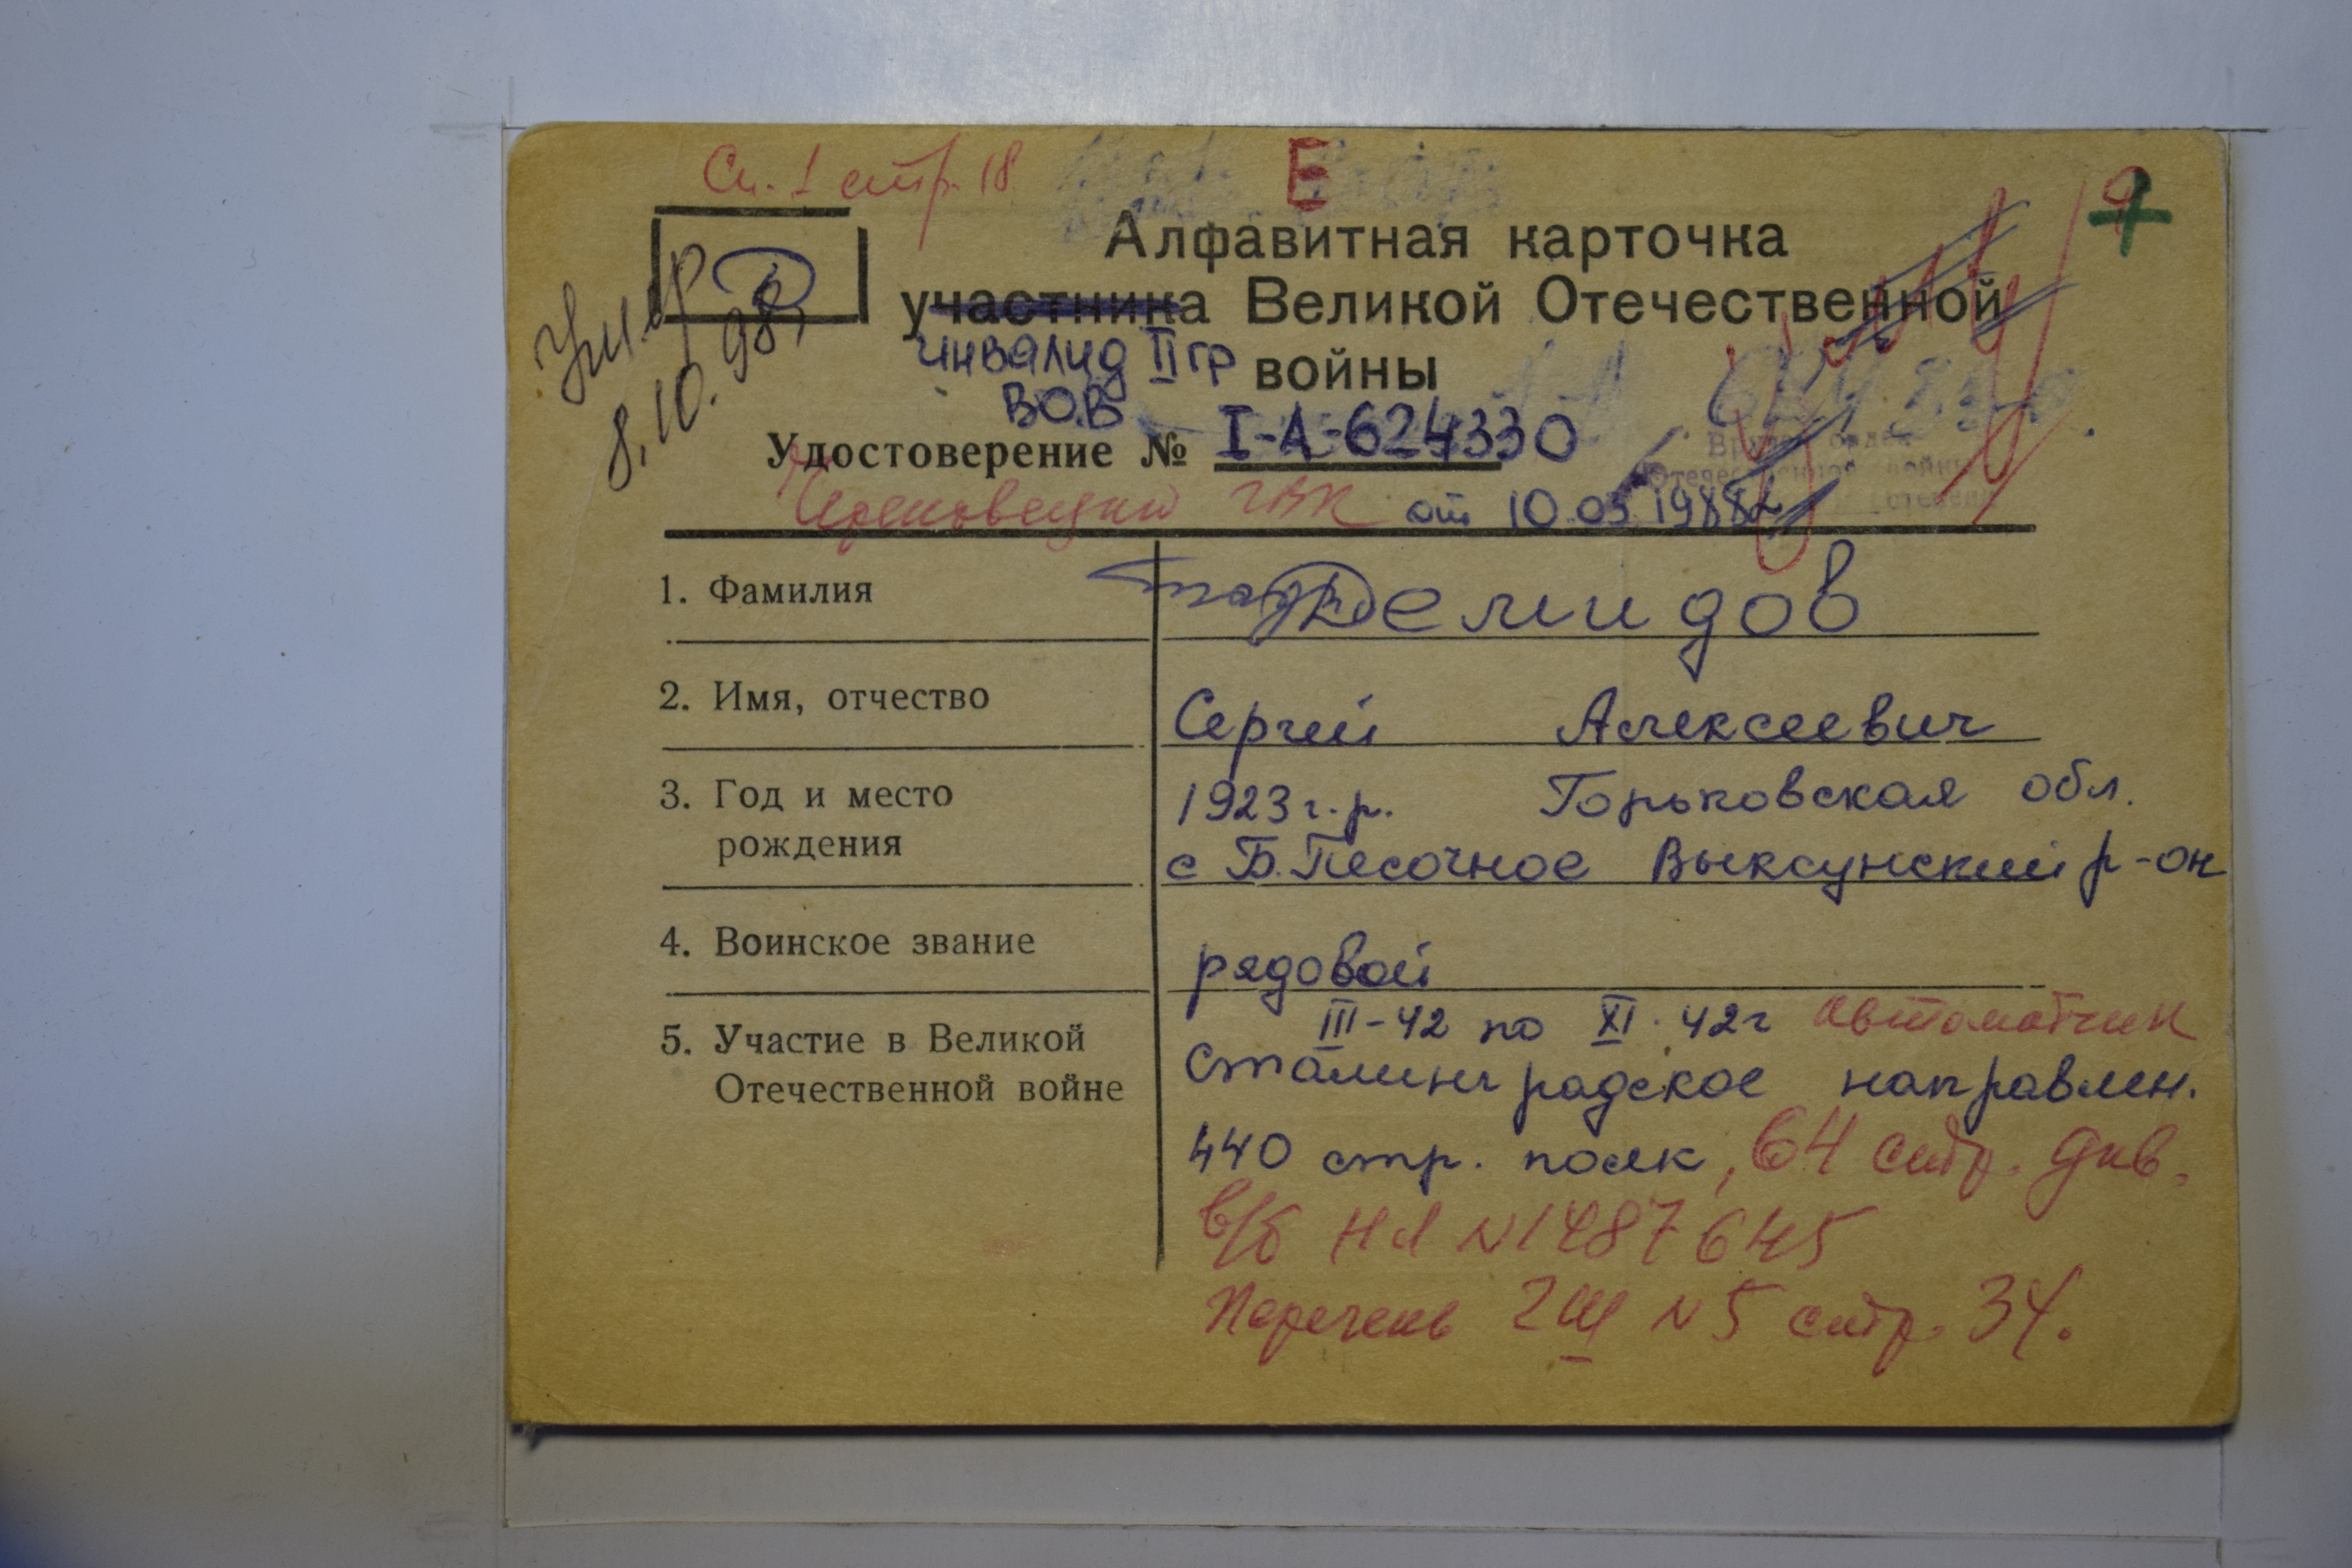 Сп. 1 стр. 18
Е
Умер
8.10.98г
Д
Алфавитная карточка
участника Великой Отечественной
инвалид II гр
войны
ВОВ
Удостоверение № I-А-624330
Вручен орден
Отечественной войны
степени
Череповецкий ГВК от 10.05 1988г
1. Фамилия Демидов
2. Имя, отчество Сергей Алексеевич
3. Год и место 1923 г.р. Горьковская обл.
рождения с Б. Песочное Выксунский р-он
4. Воинское звание рядовой
III-42 по XI.42г автоматчик
5. Участие в Великой Сталинградское направлен.
Отечественной войне
440 стр. полк, 64 стр. див.
в/б НЛ №1487645
Перечень 2Ш №5 стр. 34.